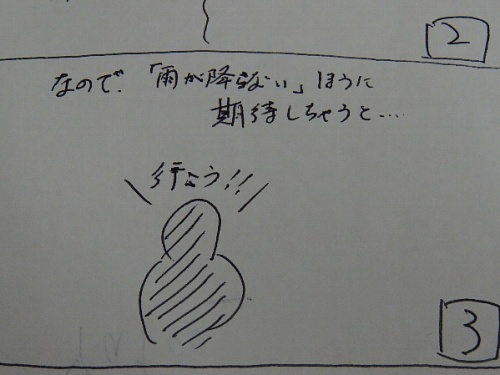 2
なので、「雨が降らない」ほうに
期待しちゃうと....
行こう!!
3